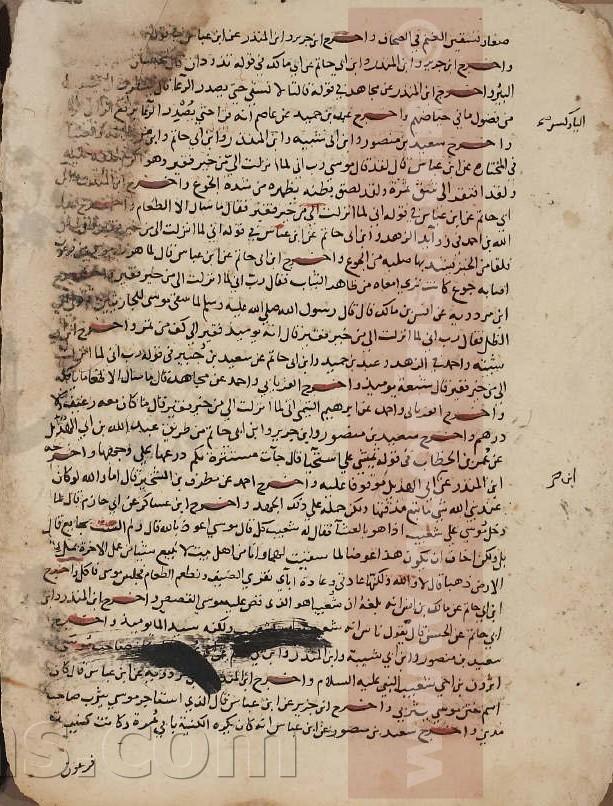 صغار تسقين الغنم في الصحاف واخرج ابن جرير وابن المنذر عن ابن عباس في قوله
واخرج ابن جرير وابن المنذر وابن ابي حاتم عن ابي مالك في قوله تذودان قال
البئر واخرج ابن المنذر عن مجاهد في قوله قالتا لا نسقي حتى يصدر الرعا قال
من فضول ما في حياضهم واخرج عبد بن حميد عن عاصم انه قرا حتى يصدر الرعا برفع
واخرج سعيد بن منصور وابن ابي شيبة وابن المنذر وابن ابي حاتم
في المختارة عن ابن عباس قال لقد قال موسى رب اني لما انزلت الي من خير فقير وهو
ولقد افتقر الى شق تمرة ولقد لصق بطنه بظهره من شدة الجوع واخرج ابن المنذر
ابي حاتم عن ابن عباس في قوله اني لما انزلت الي من خير فقير فقال ما سال الا الطعام واخرج
الله بن احمد في زوايد الزهد وابن ابي حاتم عن ابن عباس في قوله اني لما انزلت الي من
فلقا من الخبز يشد بها صلبه من الجوع واخرج ابن ابي حاتم عن ابن عباس قال لما هرب موسى من فرعون
اصابه جوع كانت ترى امعاه من ظاهر الثياب فقال رب اني لما انزلت الي من خير فقير
ابن مردويه عن انس بن مالك قال قال رسول الله صلى الله عليه وسلم لما سقى موسى للجاريتين ثم تولى الى
الظل فقال رب اني لما انزلت الي من خير فقير قال انه يوميذ فقير الى كف من تمر واخرج ابن
شيبة واحمد في الزهد وعبد بن حميد وابن ابي حاتم عن سعيد بن جبير في قوله رب اني لما انزلت
الي من خير فقير قال شبعه يوميذ واخرج الفريابي واحمد عن مجاهد قال ما سال الا طعاما ياكله
واخرج الفريابي واحمد عن ابرهيم التيمي اني لما انزلت الي من خير فقير قال ما كان معه رغيف ولا
درهم واخرج سعيد بن منصور وابن جرير وابن ابي حاتم من طريق عبد الله بن ابي الهذيل
عن عمر بن الخطاب في قوله تمشي على استحيا قال جات مستترة بكم درعها على وجهها واخرجه
ابن المنذر عن ابي الهذيل موقوفا عليه واخرج احمد عن مطرف بن الشخير قال اما والله لو كان
عند نبي الله شي ما تبع مذقتها ولكن حمله على ذلك الجهد واخرج ابن عساكر عن ابي حازم قال لما
دخل موسى على شعيب اذا هو بالعشا فقال له شعيب كل قال موسى اعوذ بالله قال ولم الست بجايع قال
بلى ولكن اخاف ان يكون هذا عوضا لما سقيت لهما وانا من اهل بيت لا نبيع شيا من عمل الاخرة بملى
الارض ذهبا قال لا والله ولكنها عادتي وعادة اباي نقري الضيف ونطعم الطعام فجلس موسى فاكل واخرج
ابن ابي حاتم عن مالك بن انس انه بلغه ان شعيبا هو الذي قص عليه موسى القصص واخرج ابن المنذر وابن
ابي حاتم عن الحسن قال يقول ناس انه ولكنه سيد الما يوميذ واخرج
سعيد بن منصور وابن ابي شيبة وابن المنذر وابن
اثرون بن اخي شعيب النبي عليه السلام واخرج ابن عن ابن عباس قال كان
اسم ختن موسى يثربي واخرج ابن جرير عن ابن عباس قال الذي استاجر موسى يثرب صاحب
مدين واخرج سعيد بن منصور عن ابن عباس انه كان يكره الكنية بابي مرة وكانت كنية
فرعون